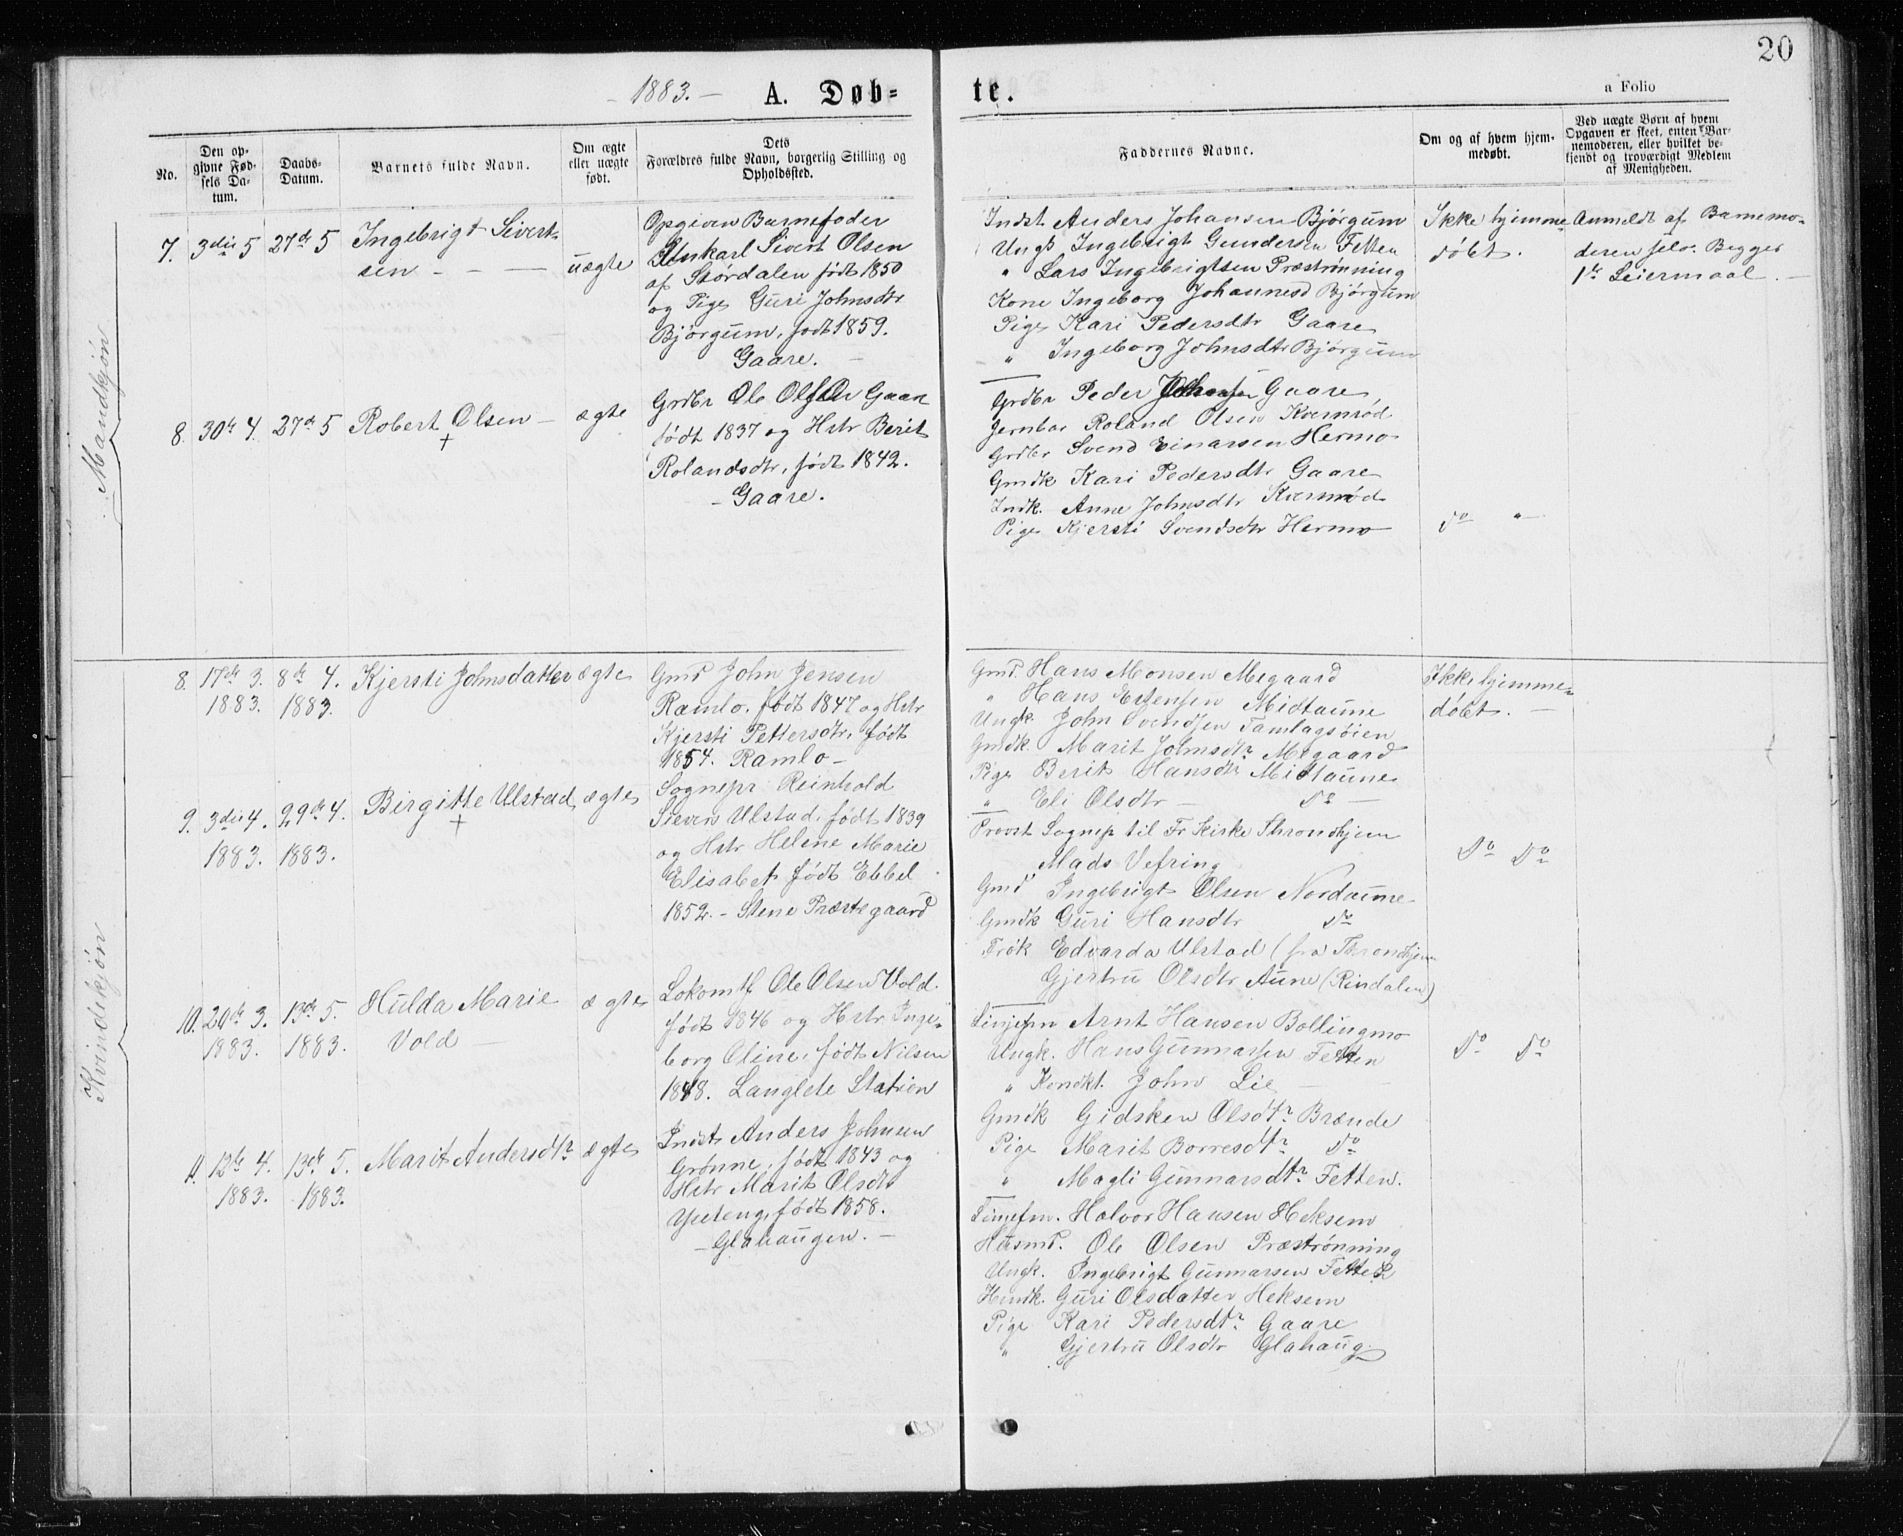 20
- 1883. - A. Døb=
te.
a Folio
No.
Den op-
givne Fød-
sels Da-
tum.
Daabs-
Datum.
Barnets fulde Navn.
Om ægte
eller uægte
født.
Dets
Forældres fulde Navn, borgerlig Stilling og
Opholdssted.
Faddernes Navne.
Om og af hvem hjem-
medøbt.
Ved uægte Børn af hvem
Opgaven er skeet, enten Bar-
nemoderen, eller hvilket be-
kjendt og troværdigt Medlem
af Menigheden.
Mandkjøn
7. 3die 5 27de 5 Ingebrigt Sivert-
sen - - -
uægte
Opgiven Barnefader
Enkarl Sivert Olsen
af Størdalen født 1850
og Pige Guri Johnsdtr
Bjørgum, født 1859.
Gaare. -
Indst Anders Johansen Bjørgum
Ungk Ingebrigt Gundersen Fetten
" Lars Ingebrigtsen Præstrønning
Kone Ingeborg Johannesd Bjørgum
Pige Kari Pedersdtr Gaare
" Ingeborg Johnsdtr Bjørgum
Ikke hjemme
døbt.
Anmeldt af Barnemo-
deren selv. Begges
1ste Leiermaal. -
8. 30te 4. 27de 5 Robert Olsen - ægte
+
Grdbr Ole Olsen Gaare
født 1837 og Hstr Berit
Rolandsdtr, født 1842.
- Gaare.
Grdbr Peder Gaare
Jernbar Roland Olsen Kvernrød
Grdbr Svend Einarsen Hermo
Gmdk Kari Pedersdtr Gaare
Indk. Anne Johnsdtr Kvernrød
Pige Kjersti Svendsdtr Hermo
do "
Kvindekjøn
8. 17de 3. 8de 4. Kjersti Johnsdatter ægte
1883. 1883.
Gmd John Jensen
Ramlo, født 1847 og Hstr
Kjersti Pettersdtr, født
1854. Ramlo -
Gmd. Hans Monsen Megaard
" Hans Estensen Midtaune
Ungk John Svendsen Tamlagsøien
Gmdk Marit Johnsdtr Megaard
Pige Berit Hansdtr Midtaune
" Eli Olsdtr - do -
Ikke hjemme
døbt. -
9. 3die 4. 29de 4. Birgitte Ulstad, ægte
+
1883. 1883.
Sognepr Reinhold
Sievers Ulstad, født 1839
og Hstr Helene Marie
Elisabet født Ebbel
1852. - Stene Præstegaard
Provst Sognep til Fr Kirke Thronhjem
Mads Vefring
Gmd Ingebrigt Olsen Nordaune
Gmdk Guri Hansdtr do
Frøk Edvarda Ulstad (fra Thronhjem
Gjertru Olsdtr Aune (Rindalen)
do do
10. 20de 3. 13de 5. Hulda Marie ægte
1883. 1883. Vold -
Lokomtf Ole Olsen Vold
født 1846 og Hstr Inge-
borg Oline, født Nilsen
1848. Langlete Station
Linjefm Arnt Hansen Bollingmo
Ungk. Hans Gunnarsen Fetten
" Kondkt. John Lie -
Gmdk Gidsken Olsdtr Brænde
Pige Marit Borresdtr do
" Magli Gunnarsdtr Fetten.
do do
11. 12te 4. 13de 5. Marit Andersdtr ægte
1883. 1883.
Indst Anders Johnsen
Grønne, født 1843 og
Hstr Marit Olsdtr
født 1858.
- Glahaugen. -
Linjefm. Halvor Hansen Heksem
Husmd. Ole Olsen Præstrønning
Ungk. Ingebrigt Gunnarsen Fetten
Hmdk. Guri Olsdatter Heksem
Pige Kari Pedersdtr Gaare
" Gjertru Olsdtr Glahaug